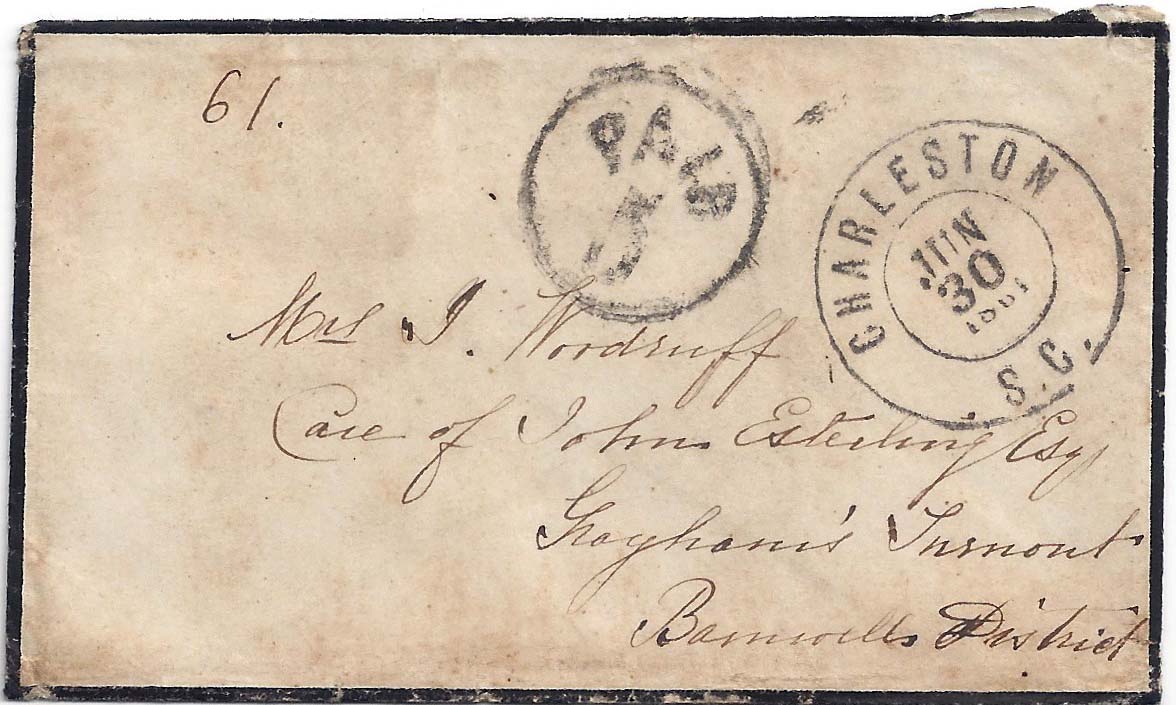 61.
PAID
5
CHARLESTON
JUN
30
1861
S.C.
Mrs J. Woodruff
Care of John Esterling Esq
Grayham's Turnout
Barnwell District